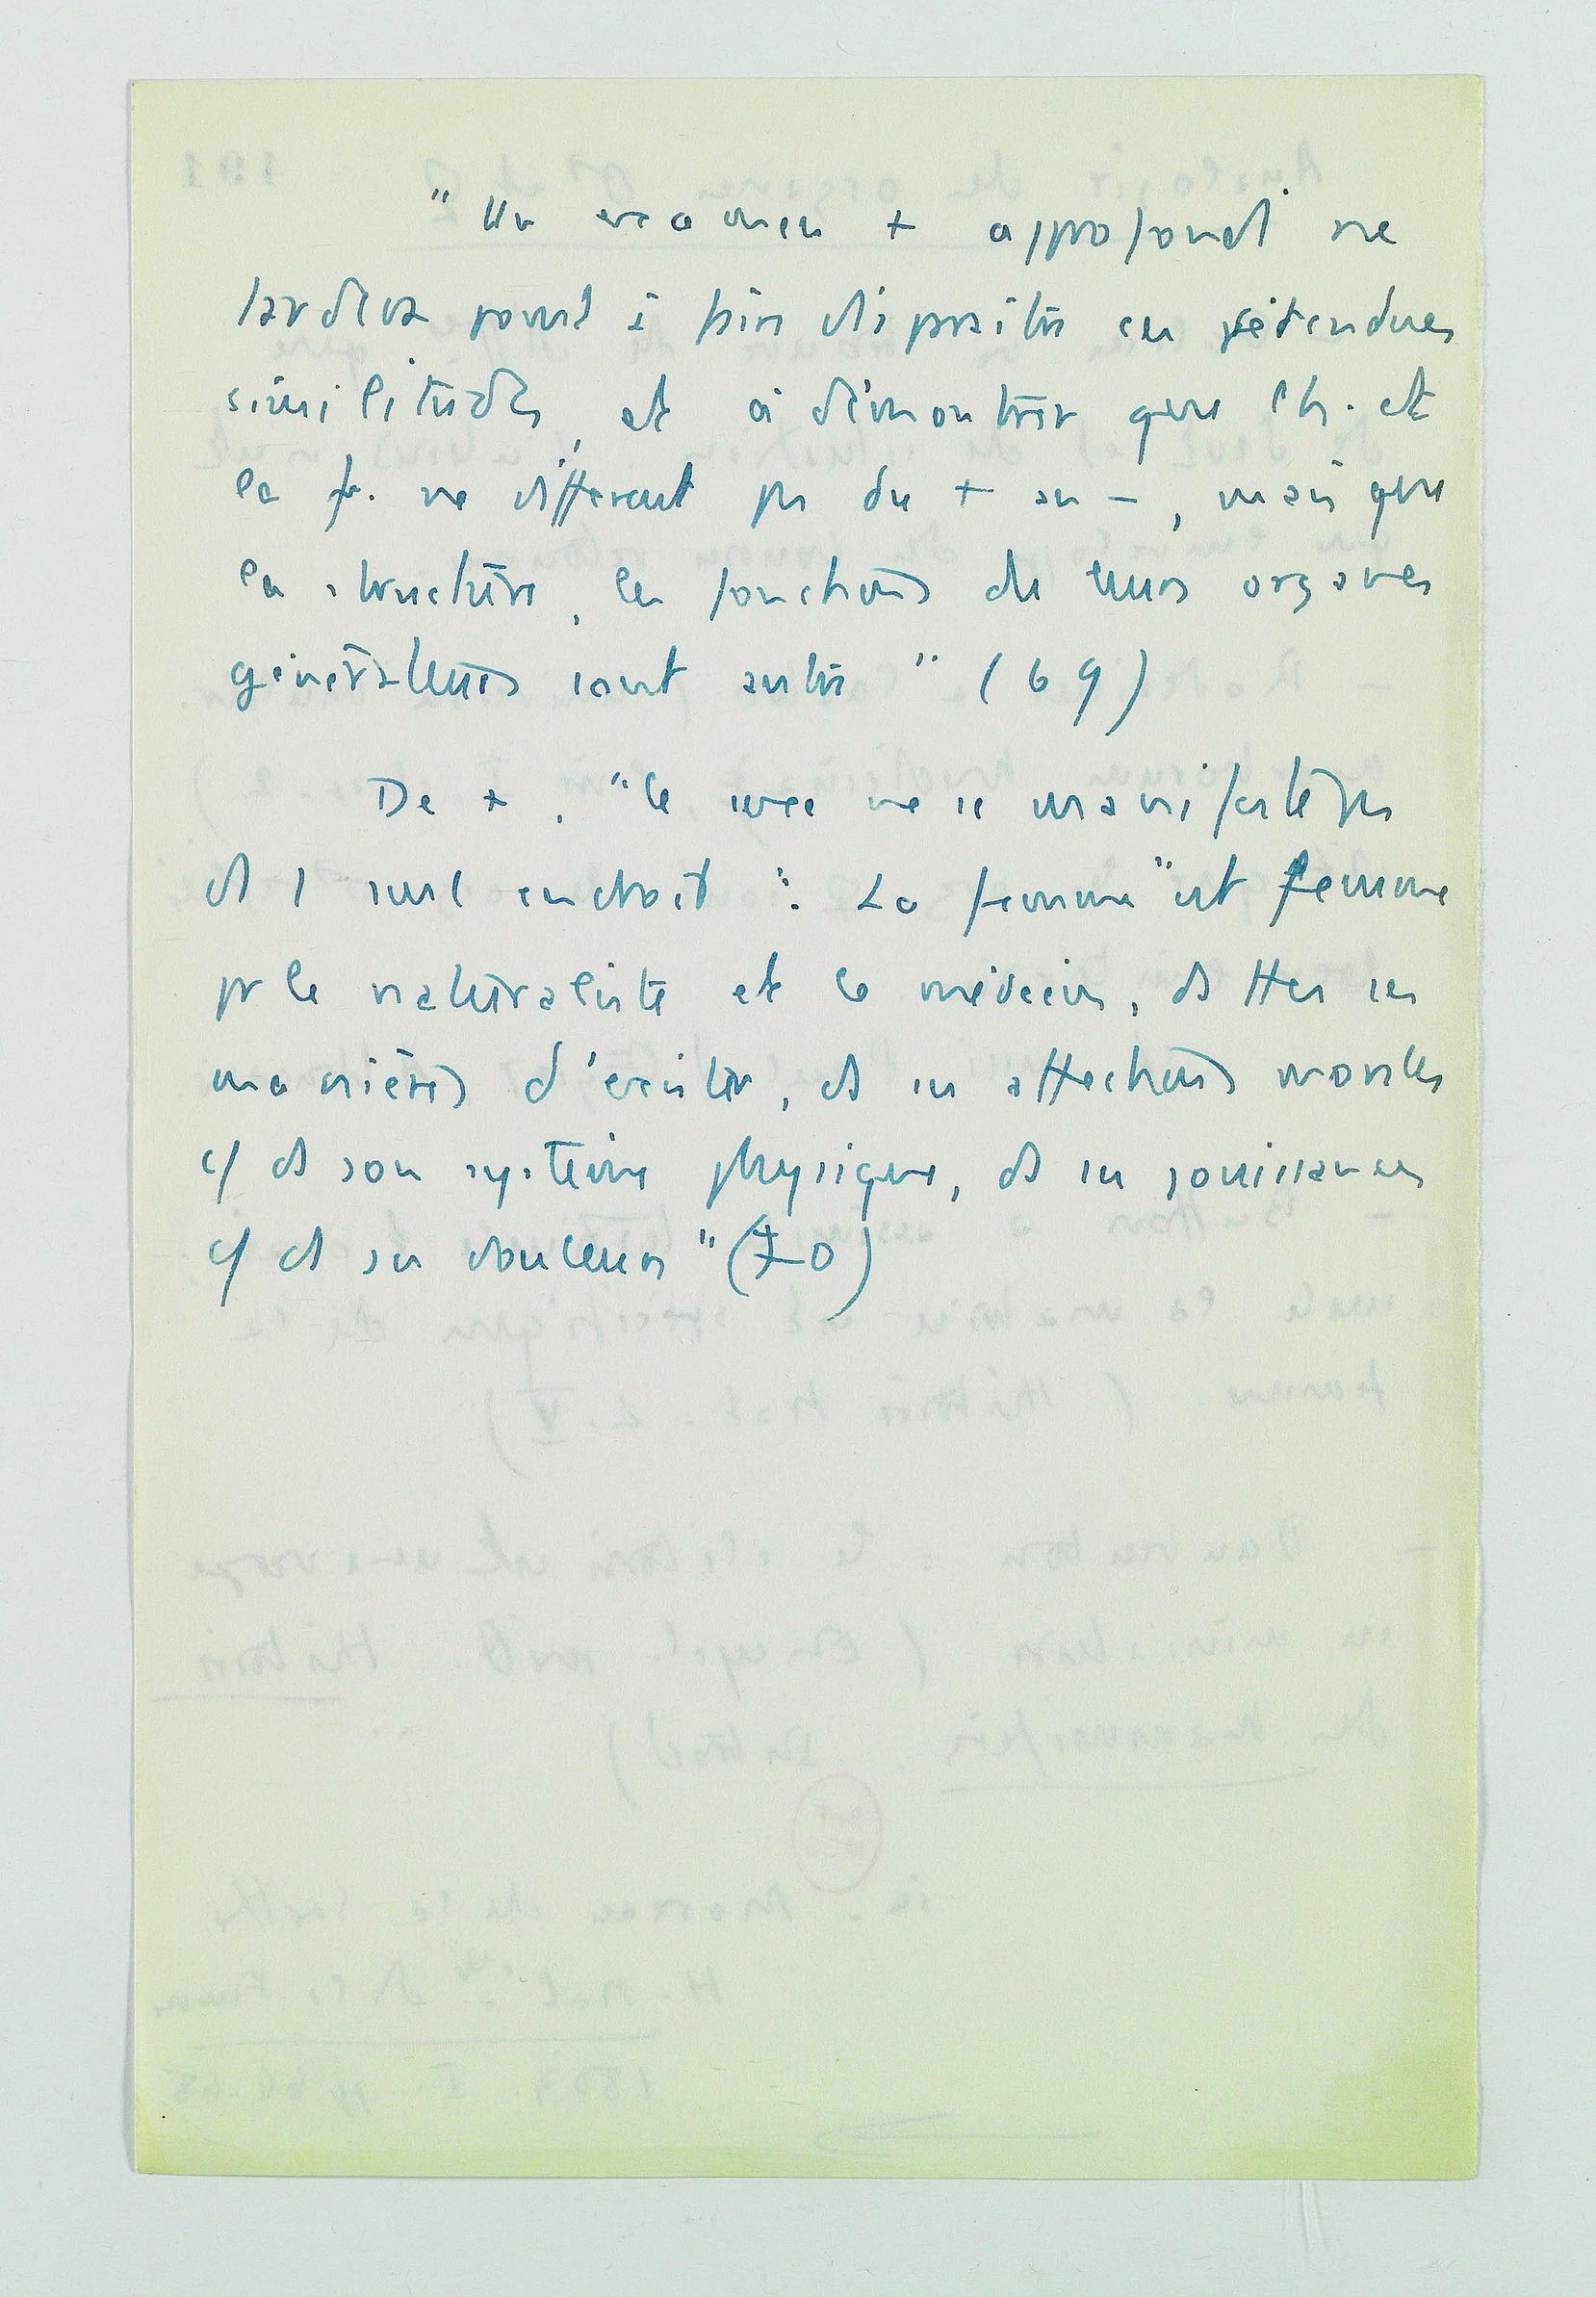 " Un examen + approfondi ne
tardera point à faire disparaître ces prétendues
similitudes, et à démontrer que l'h. et
la f. ne diffèrent pas du + au -, mais que
la structure, les fonctions de leurs organes
générateurs sont autres " (69)
De +, "le sexe ne se manifeste pas
ds 1 seul endroit": La femme "est femme
pr le naturaliste et le médecin, ds ttes ses
manières d'exister, ds ses affections morales
c/ ds son système physique, ds ses jouissances
c/ ds ses douleurs" (70)